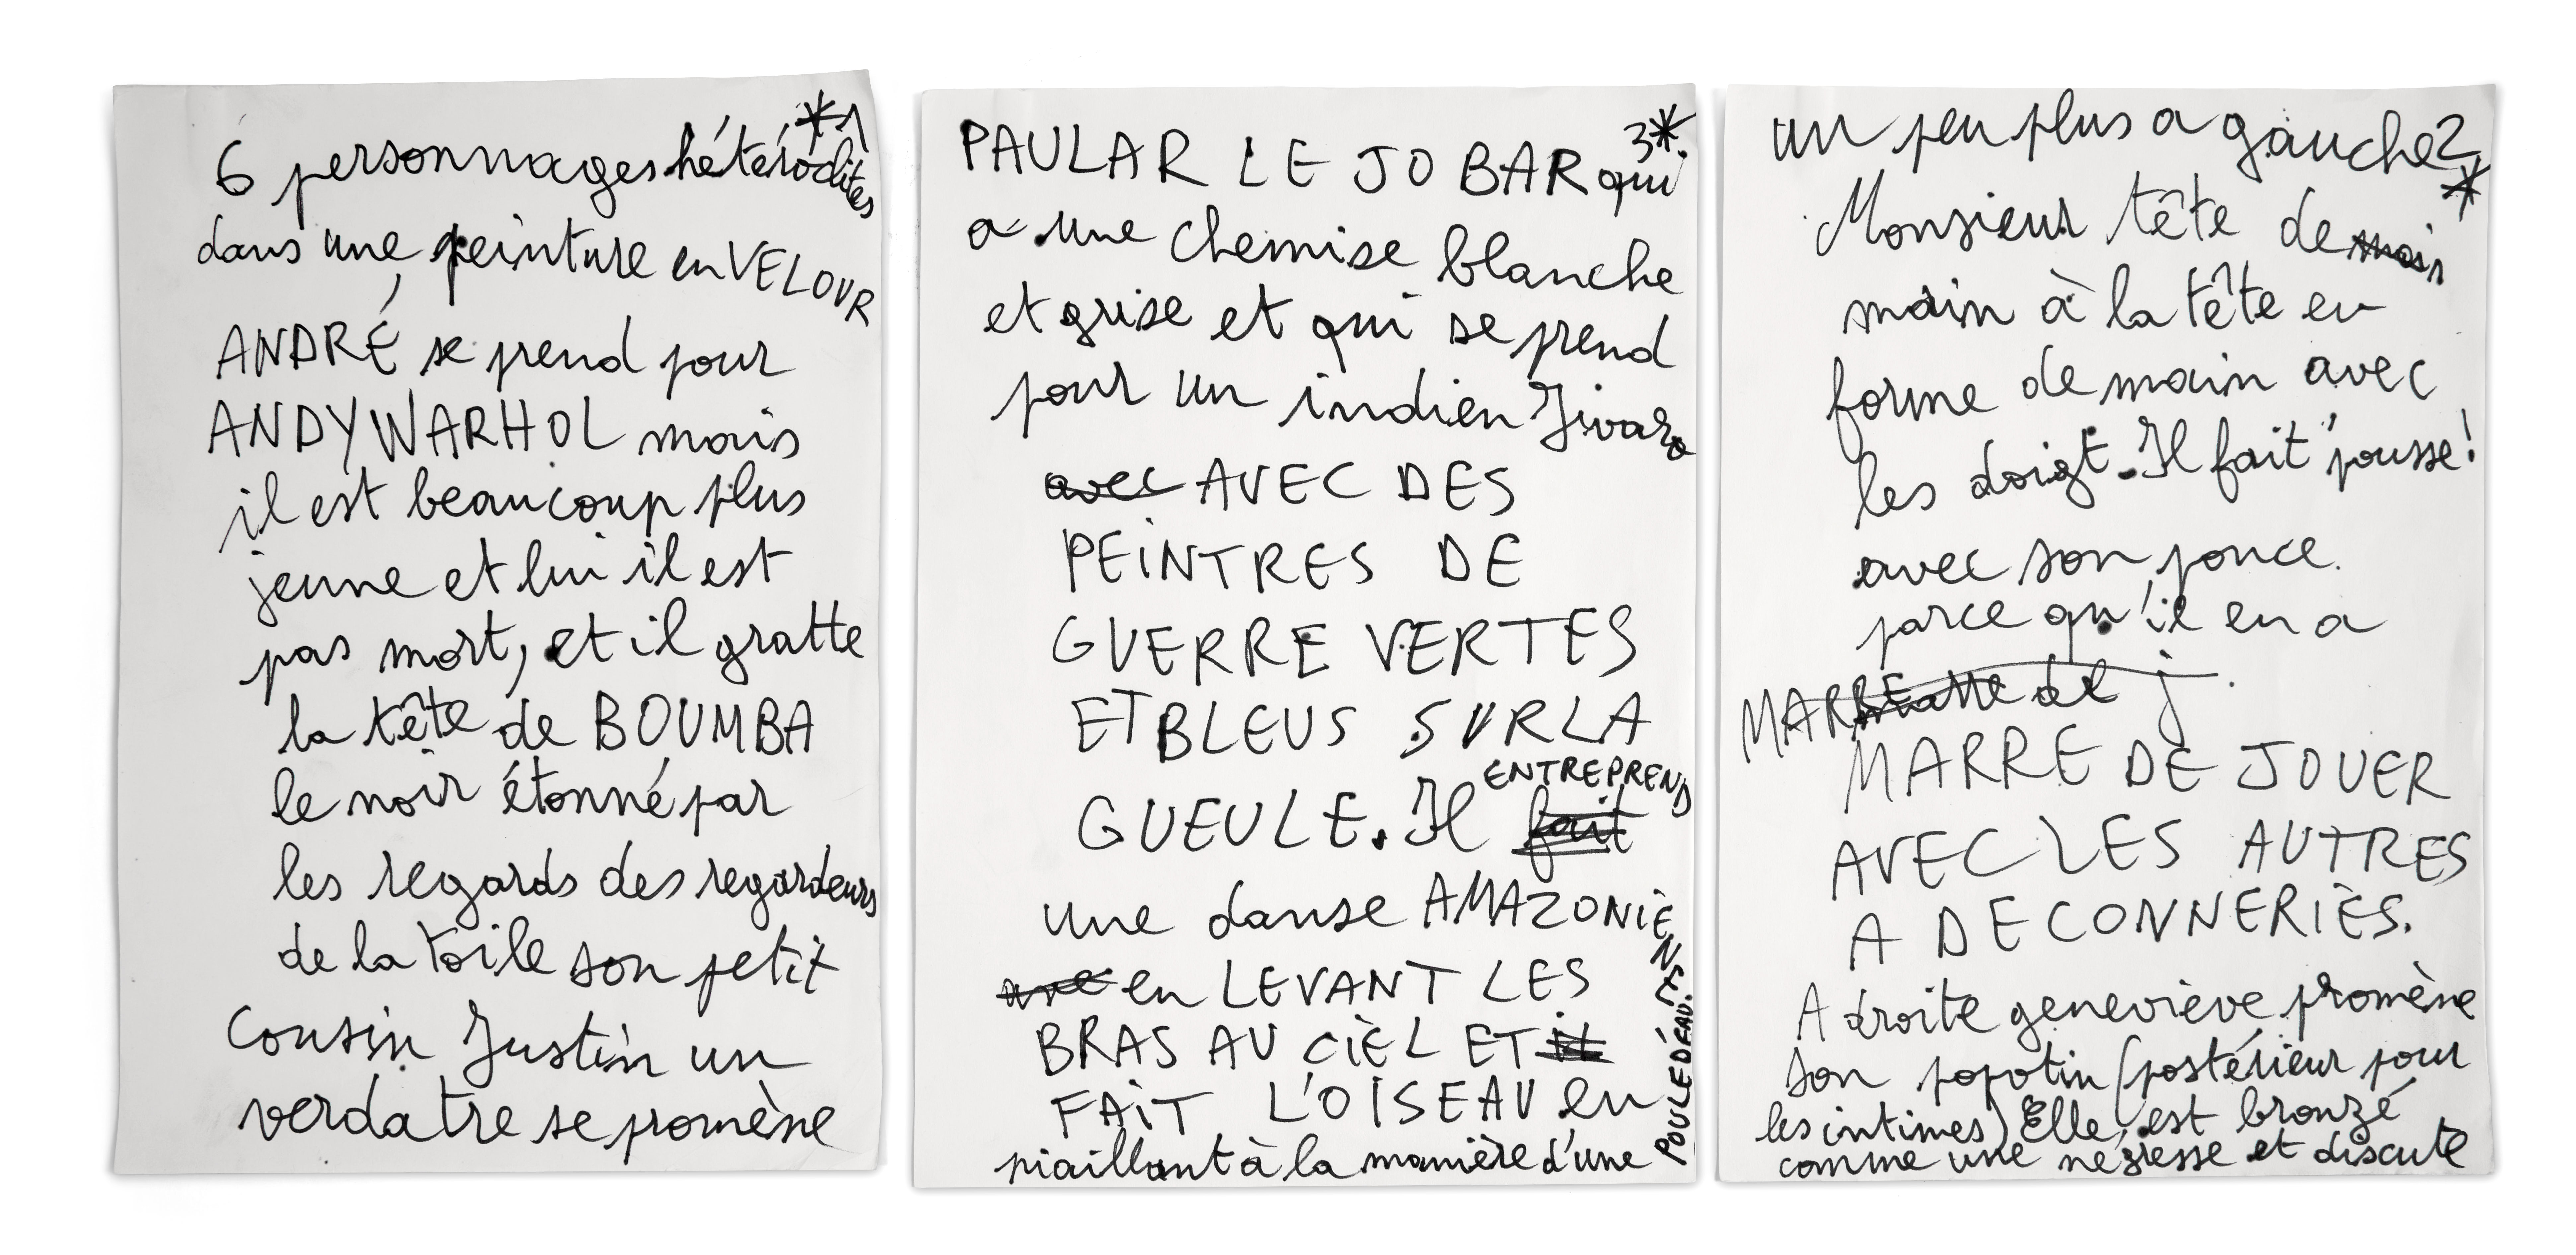 *1
6 personnages hétéroclites
dans une peinture en VELOUR
ANDRÉ se prend pour
ANDY WARHOL mais
il est beaucoup plus
jeune et lui il est
pas mort, et il gratte
la tête de BOUMBA
le noir étonné par
les regards des regardeurs
de la toile son petit
cousin Justin un
verdatre se promène
3*
PAULAR LE JOBAR qui
a une chemise blanche
et grise et qui se prend
pour un indien Jivaro
avec AVEC DES
PEINTRES DE
GUERRE VERTES
ET BLEUS SUR LA
GUEULE. Il fait ENTREPREND
une danse AMAZONIENNE
en LEVANT LES
BRAS AU CIEL ET il
FAIT L'OISEAU en
piaillant à la manière d'une
POULE D'EAU.
un peu plus a gauche 2*
Monsieur tête de main
main à la tête en
forme de main avec
les doigt. Il fait "pousse!
avec son pouce.
parce qu'il en a
MARRE de j
MARRE DE JOUER
AVEC LES AUTRES
A DECONNERIES.
A droite geneviève promène
son popotin (postérieur pour
les intimes) Elle est bronzé
comme une négresse et discute